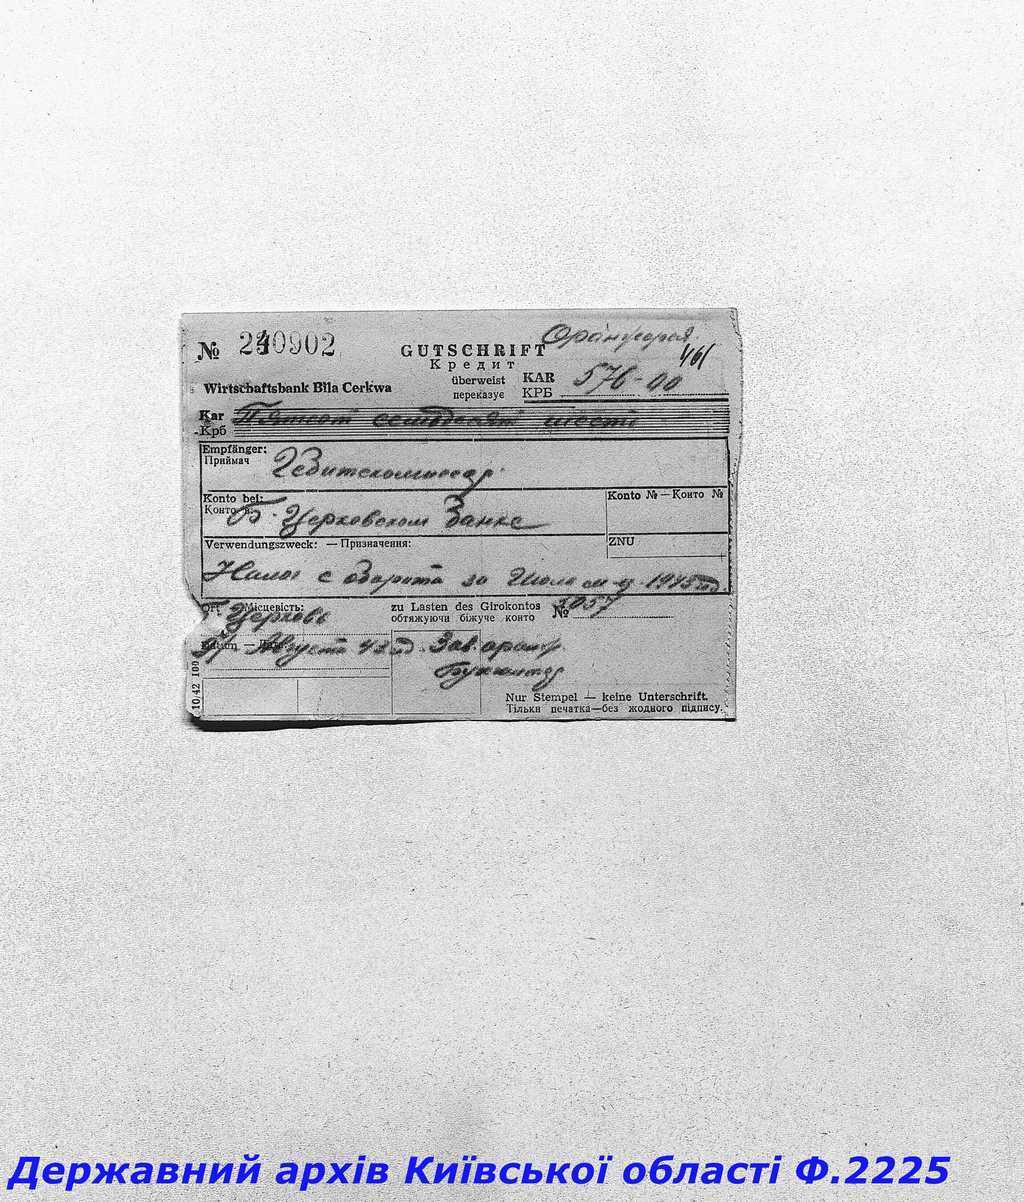 № 240902
Оранжерея
461
GUTSCHRIFT
Кредит
Wirtschaftsbank Bila Cerkwa
überweist KAR 576-00
переказує КРБ
Kar Пятсот семьдесят шесть
Крб
Empfänger:
Приймач Гебитскомиссар
Konto bei: Konto № — Конто №
Конто в: Б-Церковском Банке
Verwendungszweck: — Призначення: ZNU
Налог с оборота за Июль м-ц 1943 год.
Ort — Місцевість: zu Lasten des Girokontos № 3057
обтяжуючи біжуче конто
Б. Церковь
Datum — Дата
Август 43 год. Зав. оранж.
Бухгалтер
Nur Stempel — keine Unterschrift.
Тільки печатка—без жодного підпису.
10/42 100
Державний архів Київської області Ф.2225